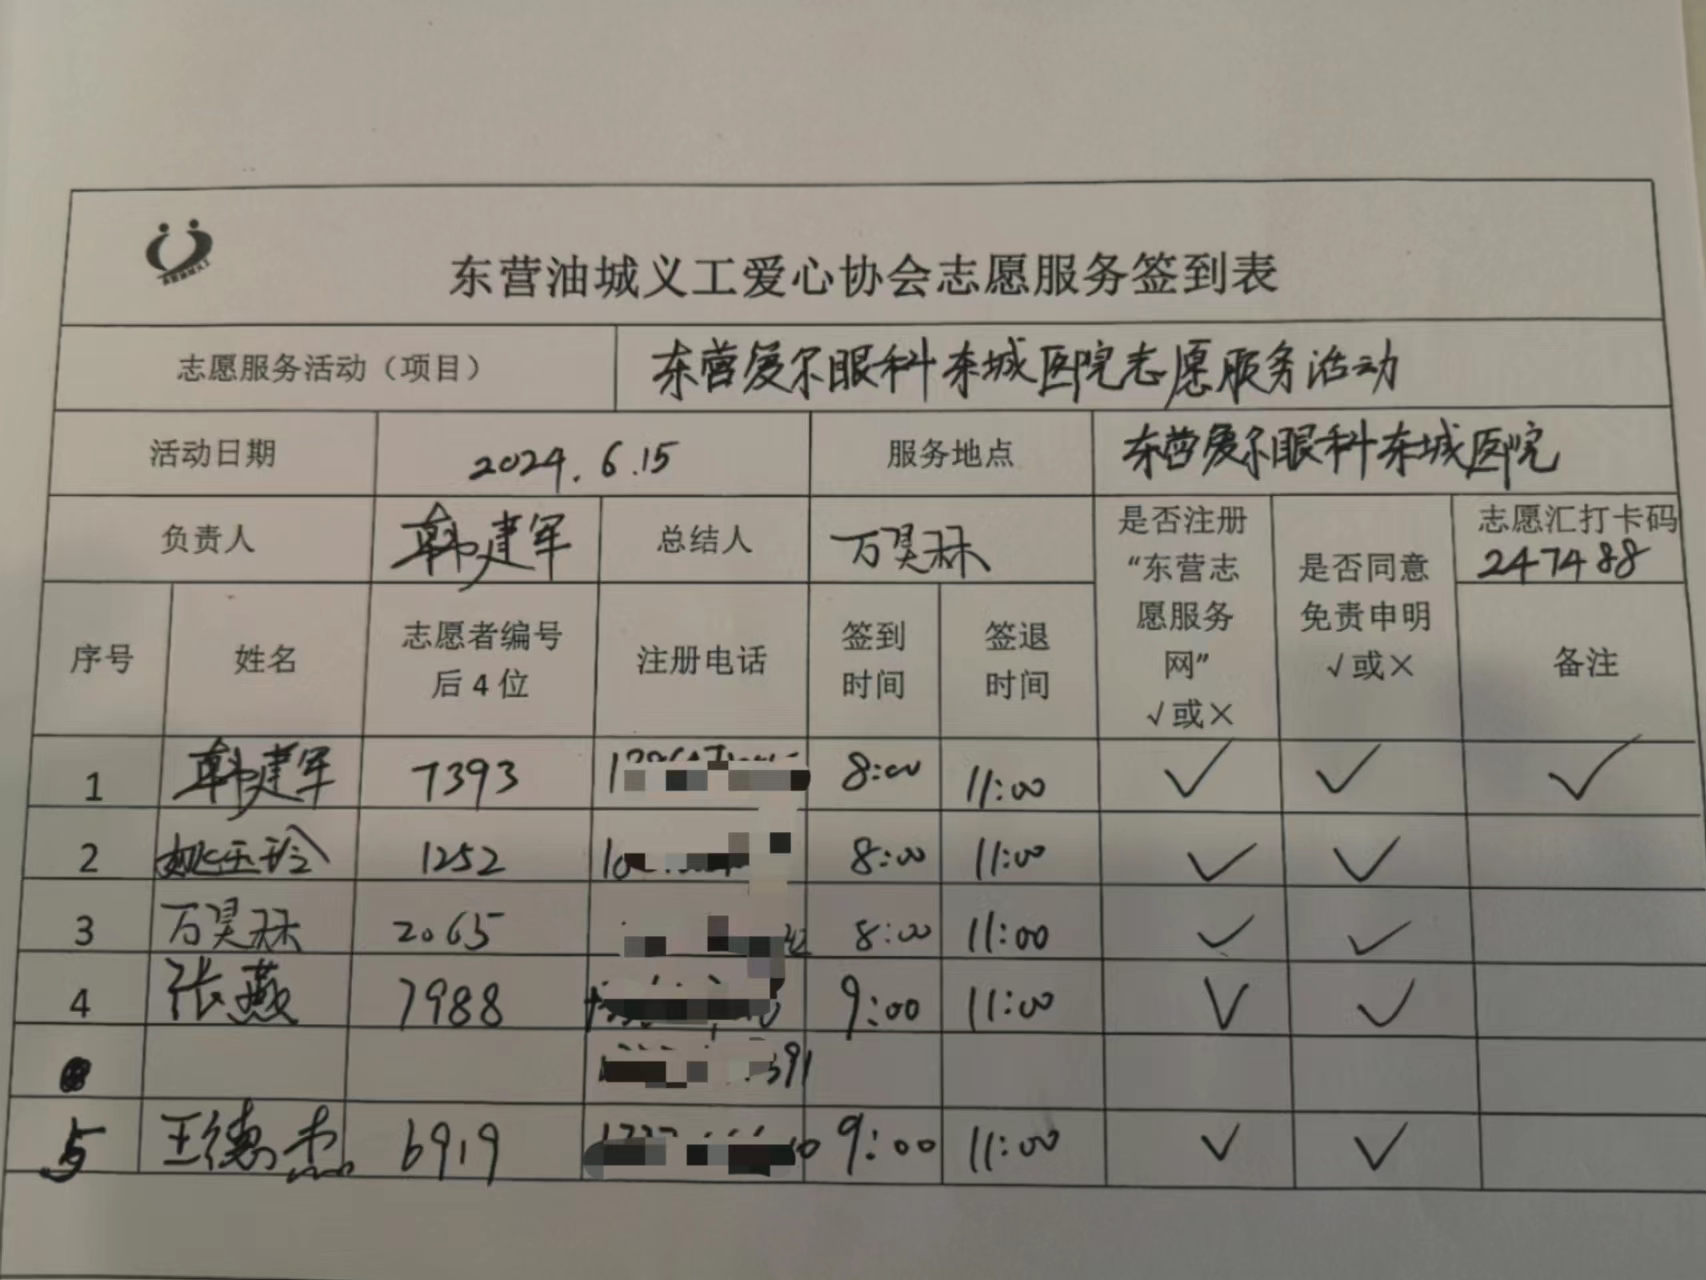 东营油城义工爱心协会志愿服务签到表
志愿服务活动（项目） 东营爱尔眼科东城医院志愿服务活动
活动日期 2024.6.15 服务地点 东营爱尔眼科东城医院
负责人 韩建军 总结人 万昊秝 是否注册“东营志愿服务网”√或× 是否同意免责申明√或× 志愿汇打卡码 247488
序号 姓名 志愿者编号后4位 注册电话 签到时间 签退时间 备注
1 韩建军 7393 8:00 11:00 ✓ ✓ ✓
2 姚玉珍 1252 8:00 11:00 ✓ ✓
3 万昊秝 2065 8:00 11:00 ✓ ✓
4 张燕 7988 9:00 11:00 ✓ ✓
391
5 王德杰 6919 9:00 11:00 ✓ ✓